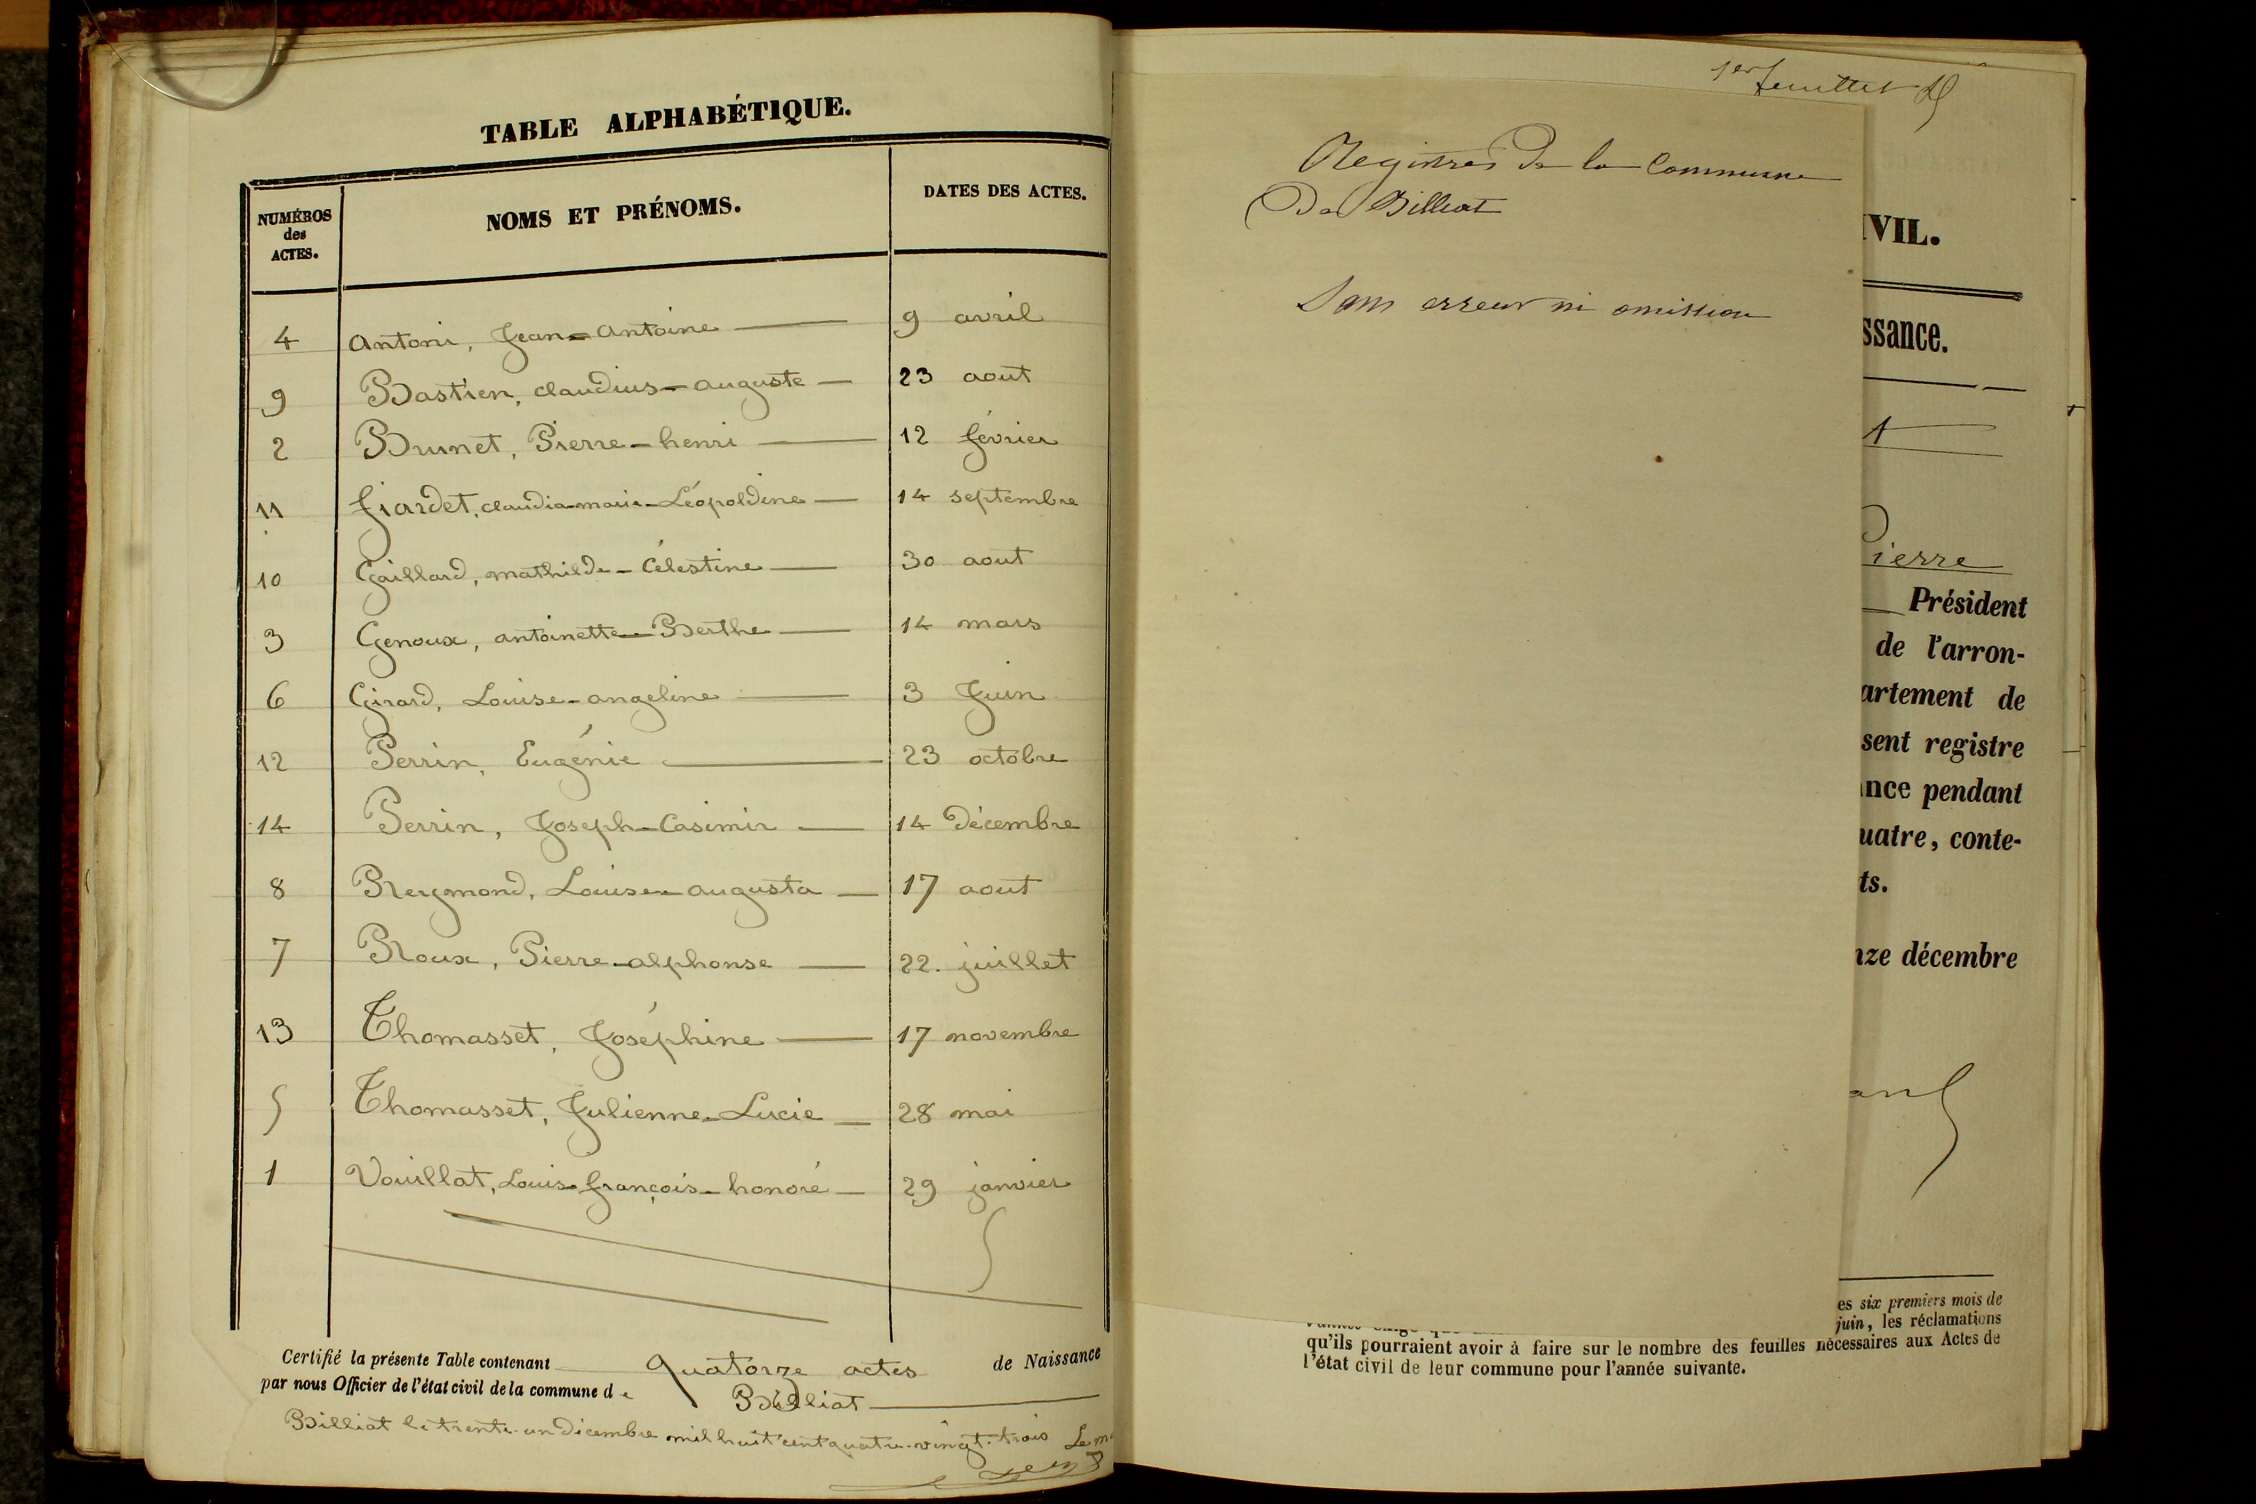 TABLE ALPHABÉTIQUE.
NUMÉROS des ACTES. NOMS ET PRÉNOMS. DATES DES ACTES.
4 Antoni, Jean-Antoine 9 avril
9 Bastien, Claudius-Auguste 23 aout
2 Brunet, Pierre-henri 12 février
11 fiardet, claudia-marie-Léopoldine 14 septembre
10 Gaillard, mathilde-Célestine 30 aout
3 Genoux, antoinette-Berthe 14 mars
6 Girard, Louise-angeline 3 Juin
12 Perrin, Eugénie 23 octobre
14 Perrin, Joseph-Casimir 14 Décembre
8 Reymond, Louise-augusta 17 aout
7 Roux, Pierre-alphonse 22. juillet
13 Thomasset, Joséphine 17 novembre
5 Thomasset, Julienne-Lucie 28 mai
1 Vouillat, Louis-françois-honoré 29 janvier
Certifié la présente Table contenant quatorze actes de Naissance
par nous Officier de l'état civil de la commune de Billiat
Billiat le trente-un Décembre mil huit cent quatre-vingt-trois Le m
1er feuillet
Registres de la Commune
De Billiat
Sans erreur ni omission
IVIL.
ssance.
t
Pierre
Président
de l'arron-
artement de
sent registre
nce pendant
uatre, conte-
ts.
nze décembre
es six premiers mois de
juin, les réclamations
qu'ils pourraient avoir à faire sur le nombre des feuilles nécessaires aux Actes de
l'état civil de leur commune pour l'année suivante.